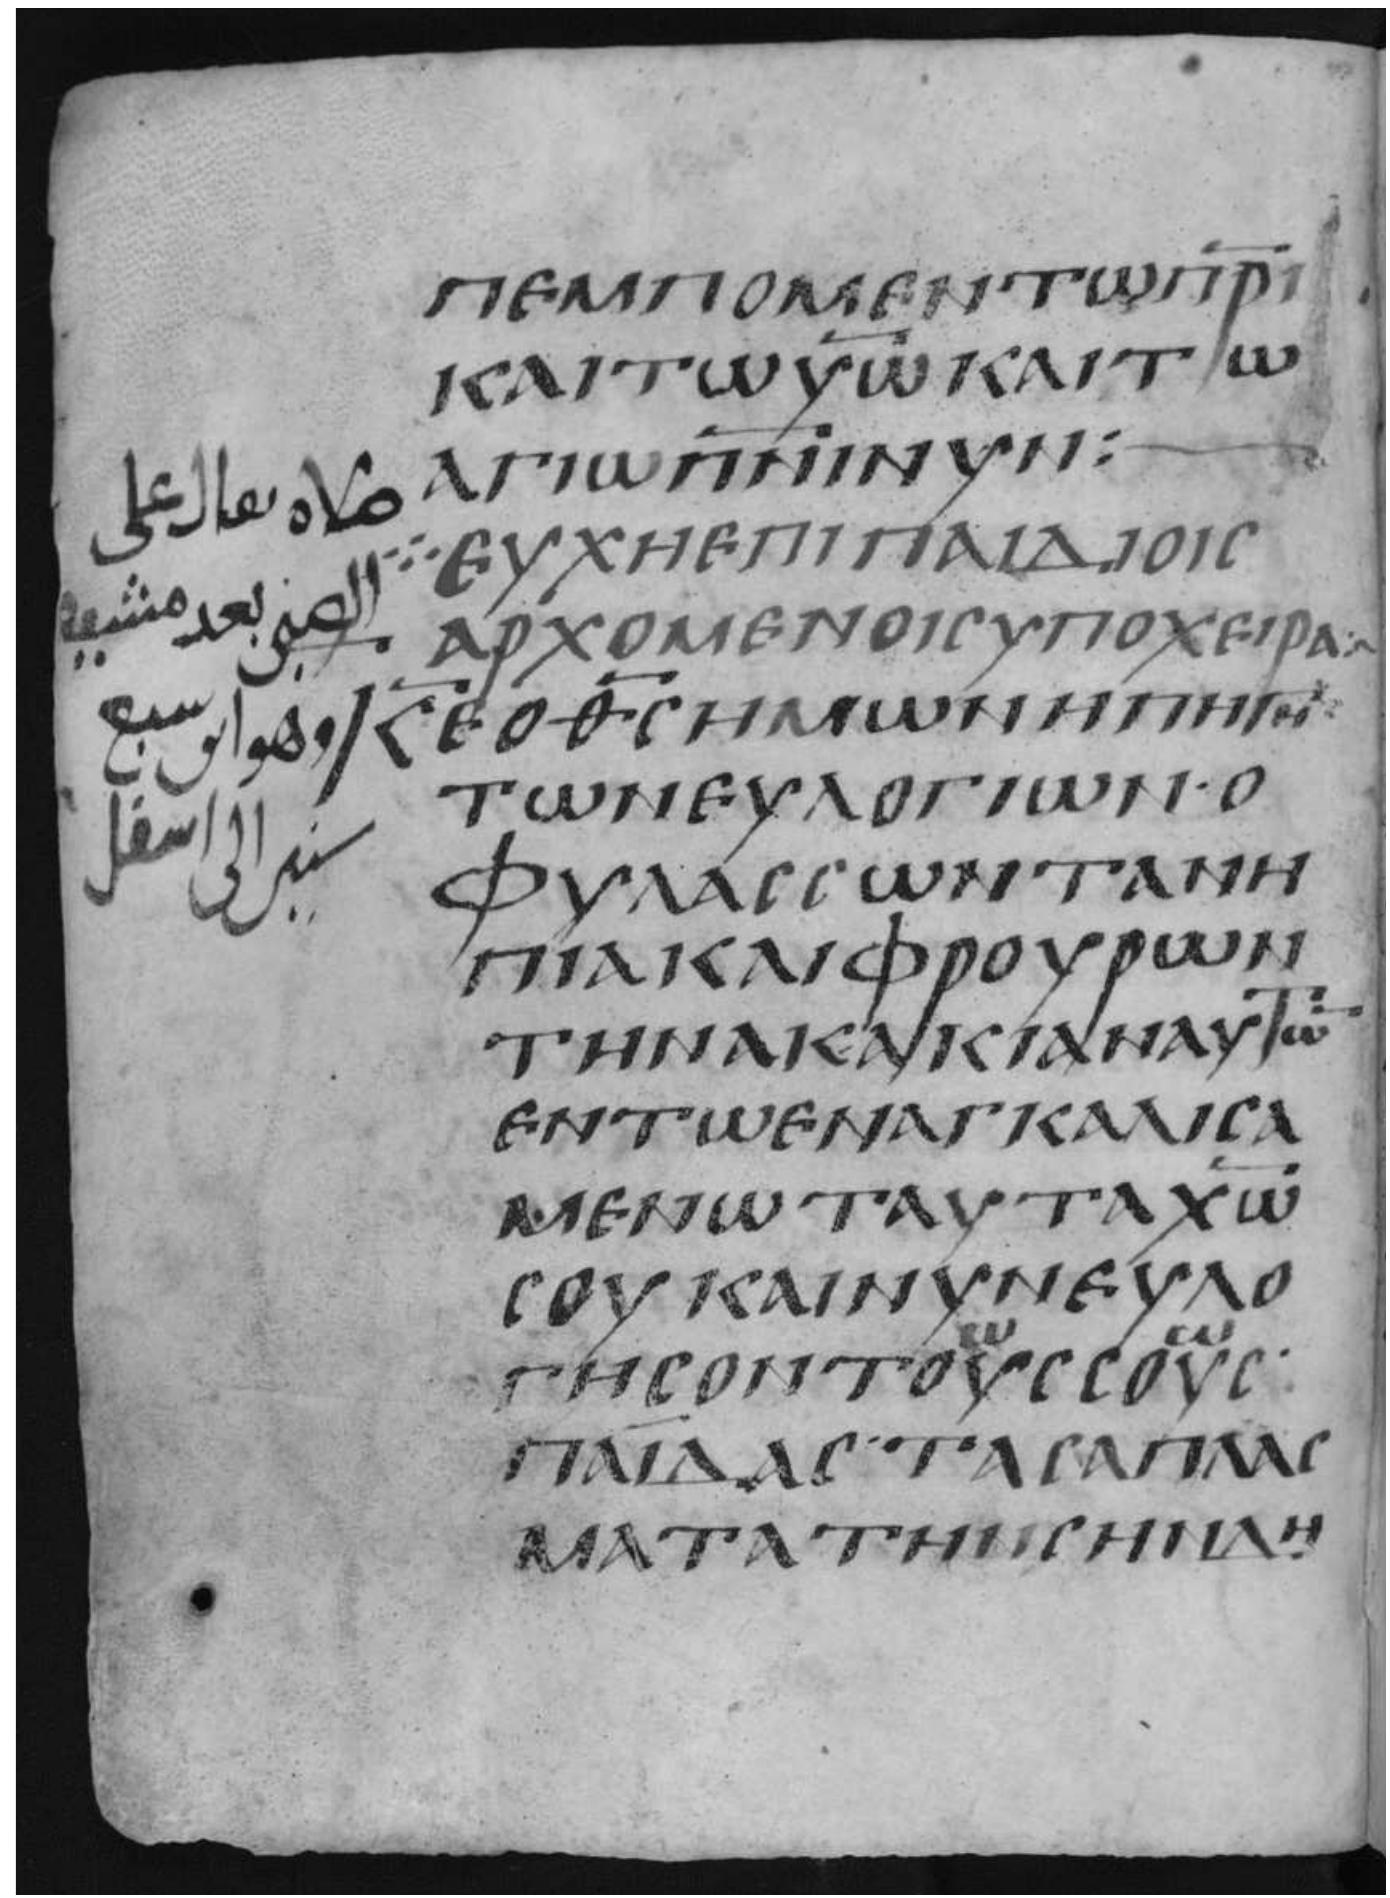 ΠΕΜΠΟΜΕΝΤΩΠ̅Ρ̅Ι̅
ΚΑΙΤΩΥ̅Ω̅ΚΑΙΤΩ
ΑΓΙΩΠ̅Ν̅Ι̅ΝΥΝ:
ΕΥΧΗΕΠΙΠΑΙΔΙΟΙC
ΑΡΧΟΜΕΝΟΙCΥΠΟΧΕΙΡΑ:~
Κ̅Ε̅ΟΘ̅C̅ΗΜΩΝΗΠΗΓΗ:
ΤΩΝΕΥΛΟΓΙΩΝ·Ο
ΦΥΛΑCCΩΝΤΑΝΗ
ΠΙΑΚΑΙΦΡΟΥΡΩΝ
ΤΗΝΑΚΑΚΙΑΝΑΥΤΩ̅
ΕΝΤΩΕΝΑΓΚΑΛΙCΑ
ΜΕΝΩΤΑΥΤΑΧ̅Ω̅
CΟΥΚΑΙΝΥΝΕΥΛΟ
ΓΗCΟΝΤΟΥCCΟΥC·
ΠΑΙΔΑC·ΤΑCΑΠΛΑC
ΜΑΤΑΤΗ CΗΙΔΗ
صلاه يقال على
الصبي بعد
وهو ابن سبع
سنين الى اسفل